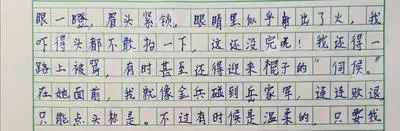 眼一瞪，眉头紧锁，眼睛里似乎射出了火，我
吓得头都不敢抬一下，这还没完呢！我还得一
路上被骂，有时甚至还得迎来棍子的“伺候。”
在她面前，我就像金兵碰到岳家军，连连败退，
只能点头称是。不过有时候是温柔的，只要我